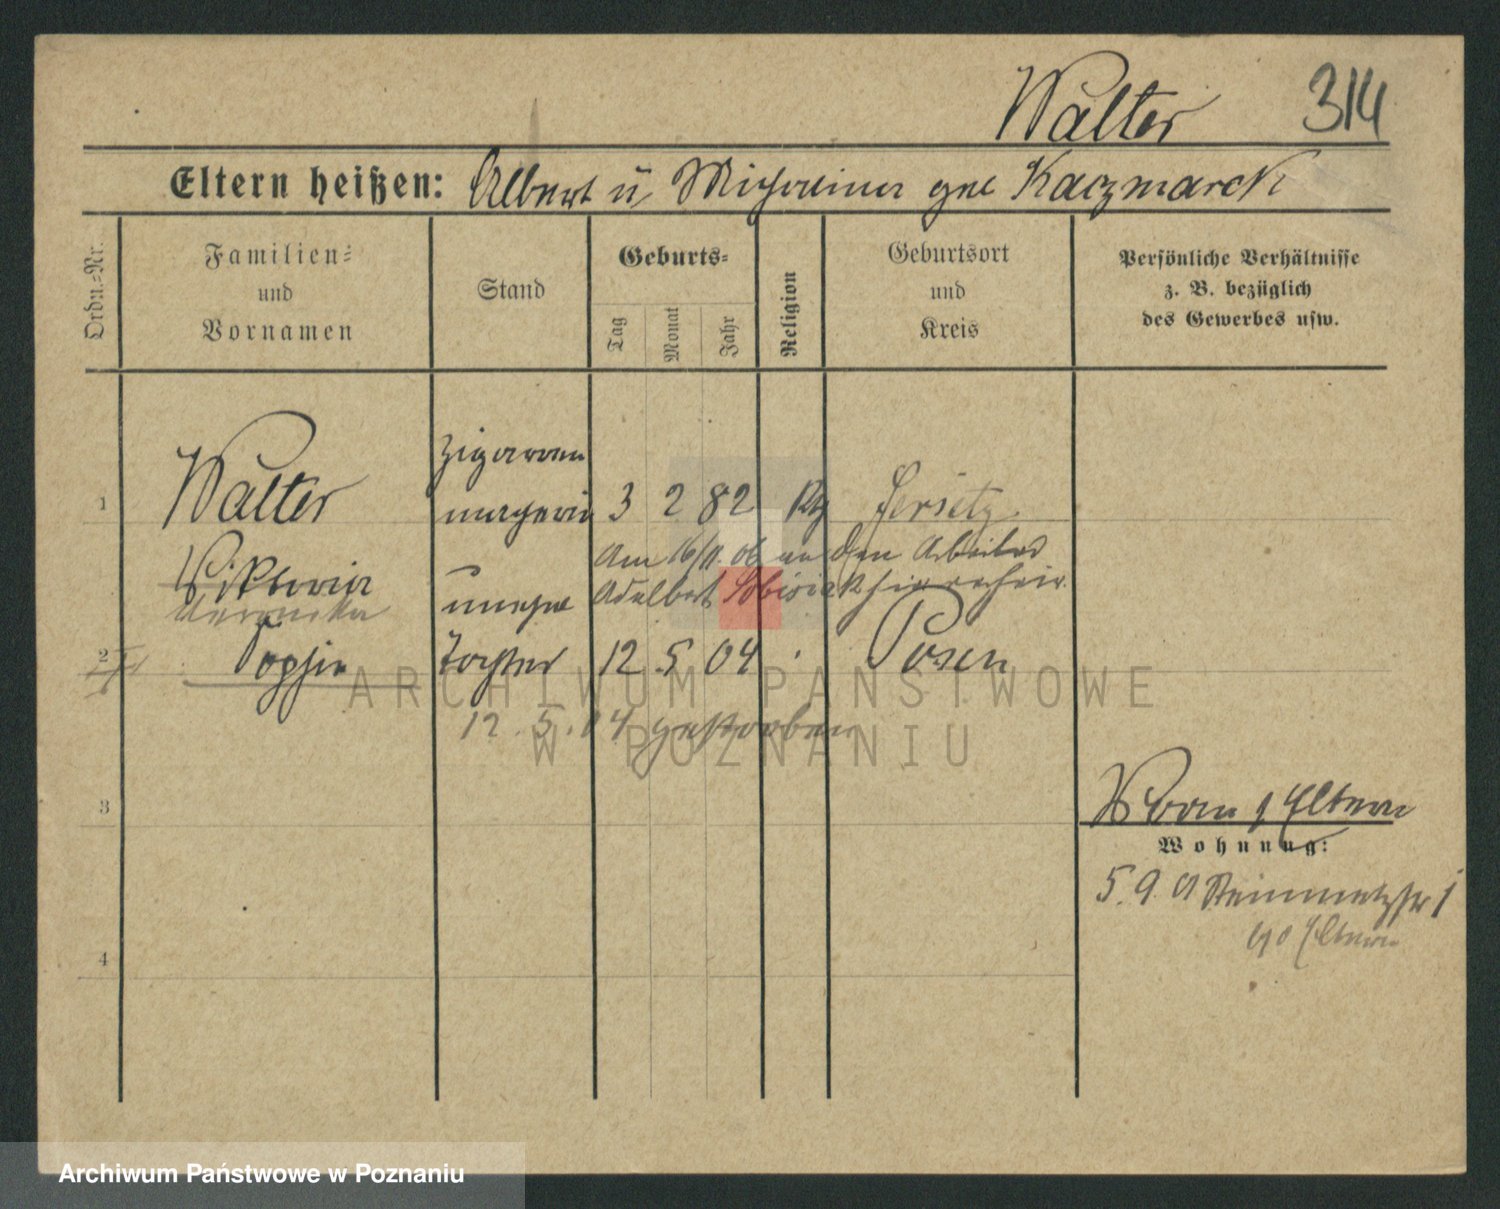 Walter 314
Eltern heißen: Albert u Michalina geb Kaczmarek
Ordn.-Nr.
Familien- und Vornamen
Stand
Geburts-
Tag
Monat
Jahr
Religion
Geburtsort und Kreis
Persönliche Verhältnisse
z. B. bezüglich
des Gewerbes usw.
Zigarren
1 Walter macherin 3 2 82 Kg Jersitz
Am 16/11. 06 an den Arbeiter
Viktoria
Adalbert
Veronika unehe
2 Sophie Tochter 12 5 04 Posen
12. 5. 04 gestorben
3
Eltern
Wohnung:
5. 9. 01 Steinmetzstr 1
Eltern
4
ARCHIWUM PAŃSTWOWE
W POZNANIU
Archiwum Państwowe w Poznaniu